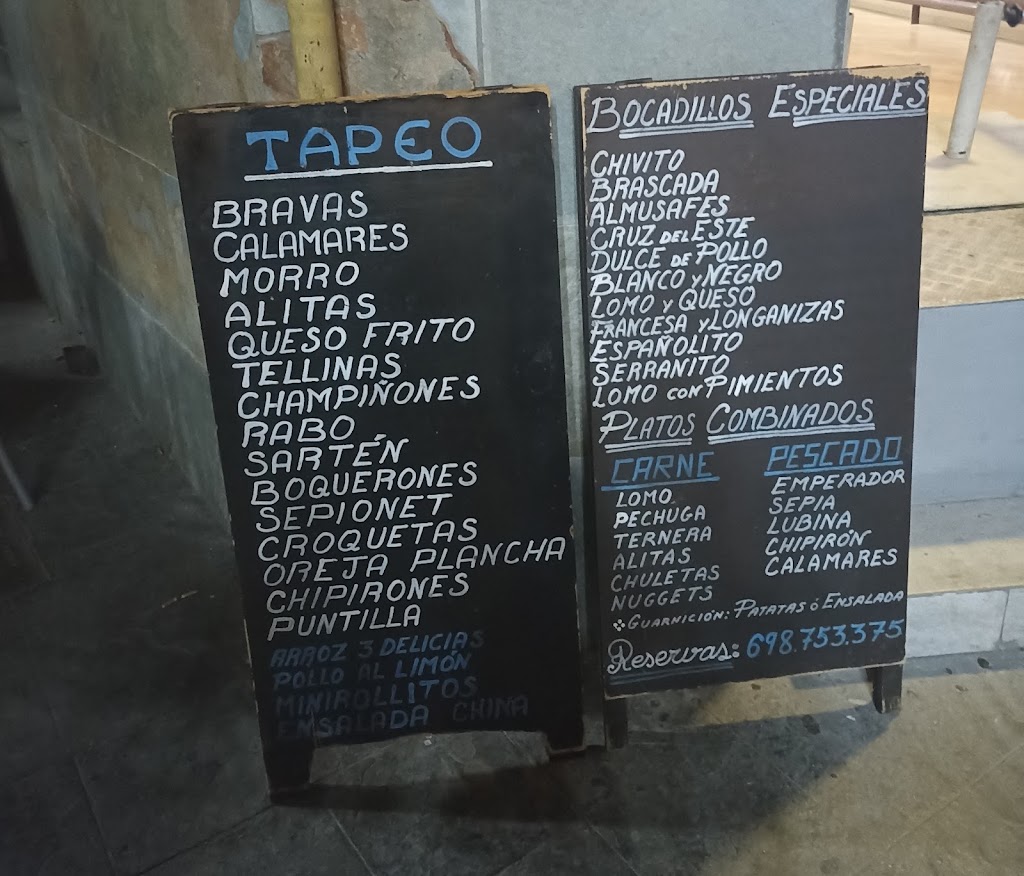 TAPEO
BRAVAS
CALAMARES
MORRO
ALITAS
QUESO FRITO
TELLINAS
CHAMPIÑONES
RABO
SARTÉN
BOQUERONES
SEPIONET
CROQUETAS
OREJA PLANCHA
CHIPIRONES
PUNTILLA
ARROZ 3 DELICIAS
POLLO AL LIMÓN
MINIROLLITOS
ENSALADA CHINA
BOCADILLOS ESPECIALES
CHIVITO
BRASCADA
ALMUSAFES
CRUZ DEL ESTE
DULCE DE POLLO
BLANCO Y NEGRO
LOMO Y QUESO
FRANCESA Y LONGANIZAS
ESPAÑOLITO
SERRANITO
LOMO CON PIMIENTOS
PLATOS COMBINADOS
CARNE
LOMO
PECHUGA
TERNERA
ALITAS
CHULETAS
NUGGETS
PESCADO
EMPERADOR
SEPIA
LUBINA
CHIPIRÓN
CALAMARES
GUARNICIÓN: PATATAS Ó ENSALADA
Reservas: 698.753.375